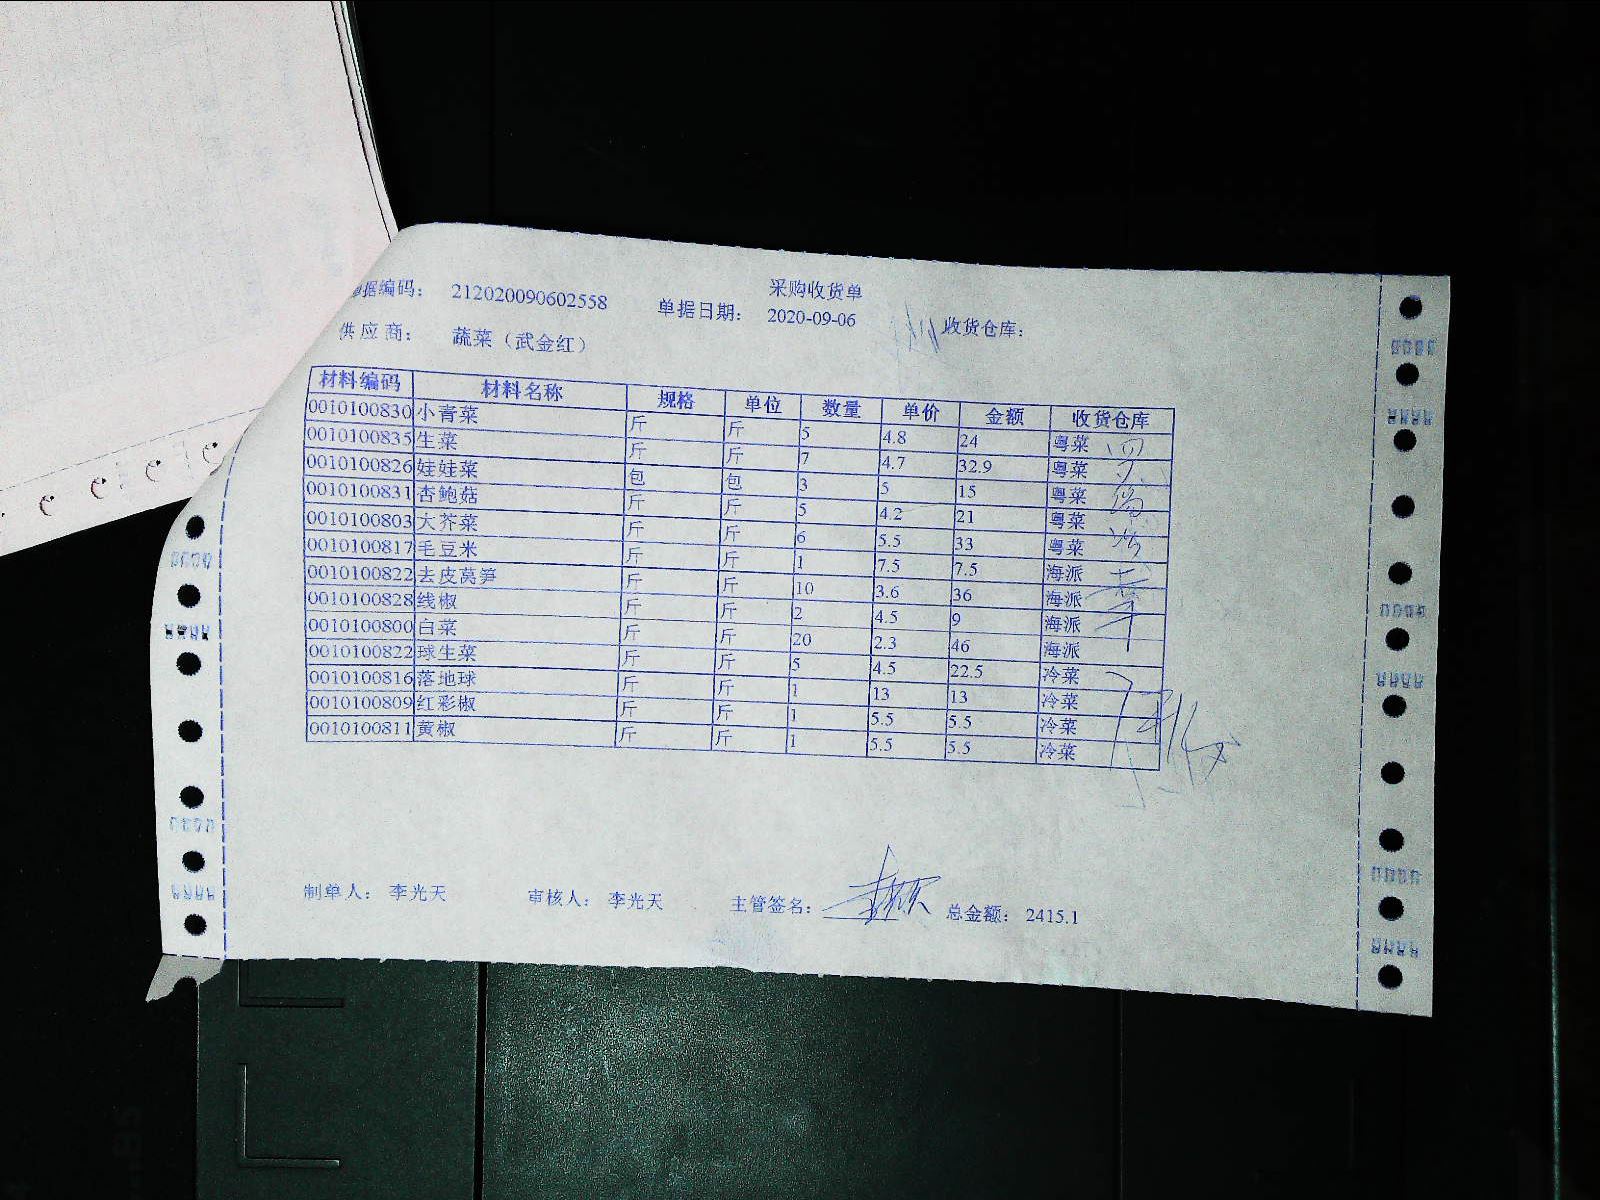 采购收货单
单据编码： 212020090602558 单据日期： 2020-09-06 收货仓库：
供应商： 蔬菜（武金红）
材料编码 材料名称 规格 单位 数量 单价 金额 收货仓库
0010100830 小青菜 斤 斤 5 4.8 24 粤菜
0010100835 生菜 斤 斤 7 4.7 32.9 粤菜
0010100826 娃娃菜 包 包 3 5 15 粤菜
0010100831 杏鲍菇 斤 斤 5 4.2 21 粤菜
0010100803 大芥菜 斤 斤 6 5.5 33 粤菜
0010100817 毛豆米 斤 斤 1 7.5 7.5 海派
0010100822 去皮莴笋 斤 斤 10 3.6 36 海派
0010100828 线椒 斤 斤 2 4.5 9 海派
0010100800 白菜 斤 斤 20 2.3 46 海派
0010100822 球生菜 斤 斤 5 4.5 22.5 冷菜
0010100816 落地球 斤 斤 1 13 13 冷菜
0010100809 红彩椒 斤 斤 1 5.5 5.5 冷菜
0010100811 黄椒 斤 斤 1 5.5 5.5 冷菜
制单人： 李光天 审核人： 李光天 主管签名： 总金额： 2415.1